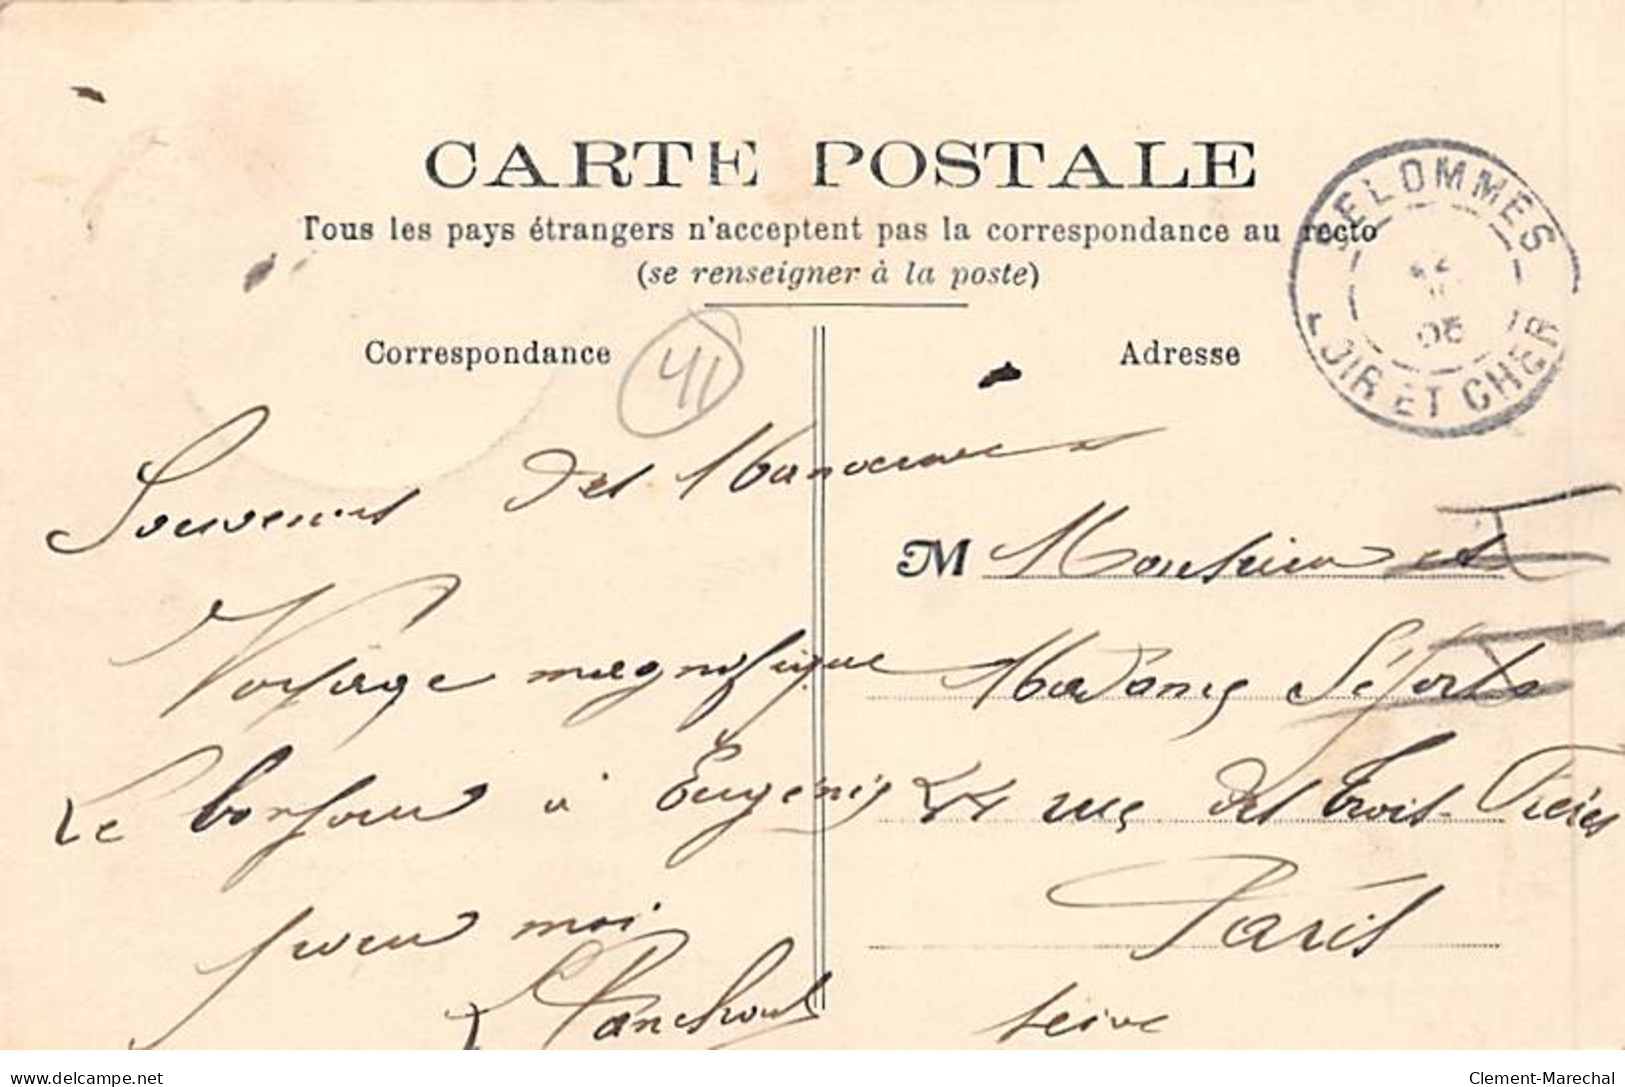 CARTE POSTALE
Tous les pays étrangers n'acceptent pas la correspondance au recto
(se renseigner à la poste)
SELOMMES
05
LOIR ET CHER
Correspondance
41
Adresse
Souvenirs des Manoeuvres
Voyage magnifique
Le bonjour à Eugénie
pour moi
M Monsieur et
Madame
44 rue des Trois-Frères
Paris
Seine
delcampe.net
Clement-Marechal